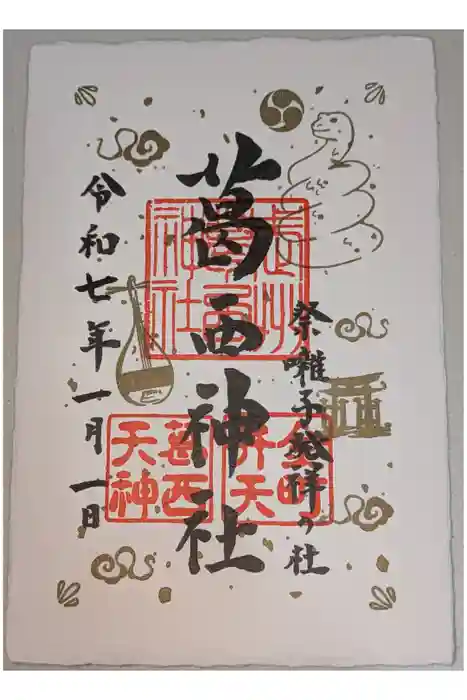 祭囃子発祥の社
葛西神社
令和七年一月一日
金町
弁天
葛西
天神